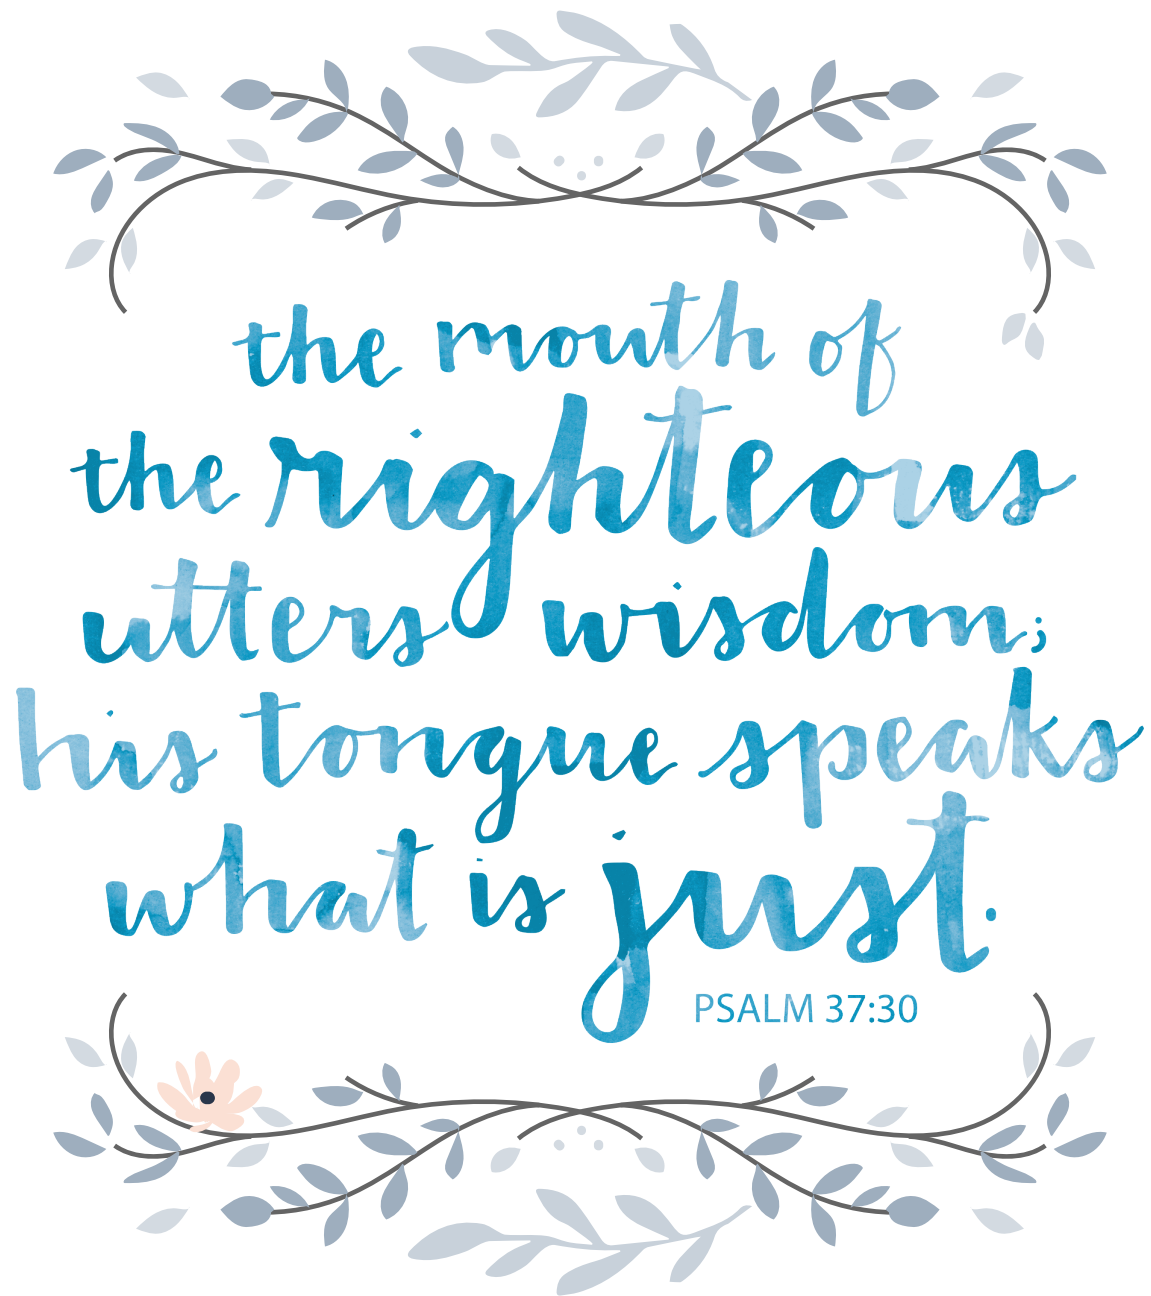 the mouth of
the righteous
utters wisdom;
his tongue speaks
what is just.
PSALM 37:30